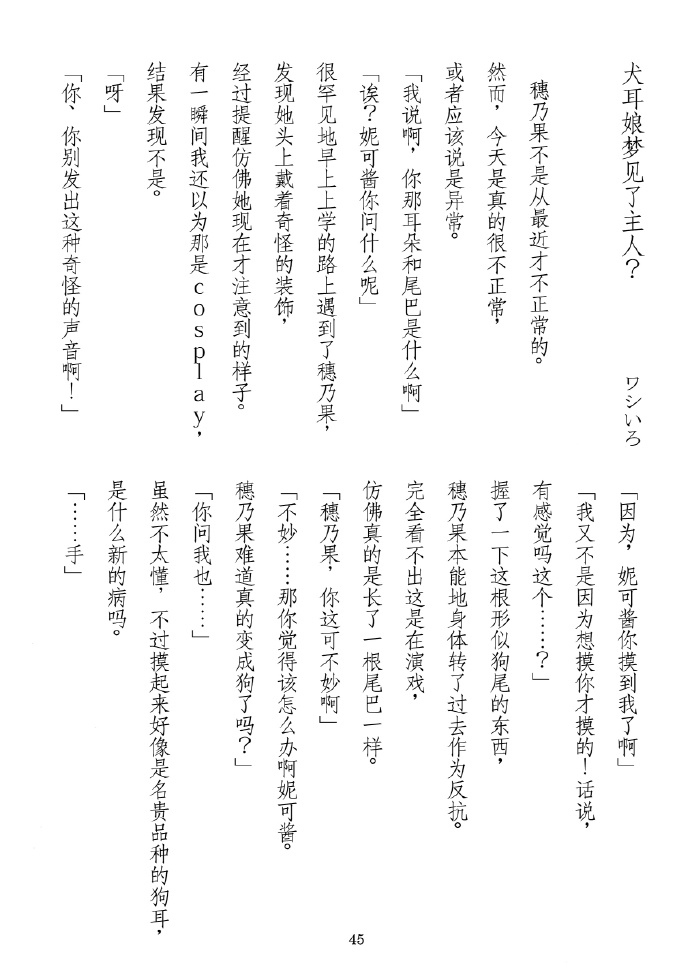 犬耳娘梦见了主人？
ワシいろ
穗乃果不是从最近才不正常的。
然而，今天是真的很不正常，
或者应该说是异常。
「我说啊，你那耳朵和尾巴是什么啊」
「诶？妮可酱你问什么呢」
很罕见地早上上学的路上遇到了穗乃果，
发现她头上戴着奇怪的装饰，
经过提醒仿佛她现在才注意到的样子。
有一瞬间我还以为那是cosplay，
结果发现不是。
「呀」
「你、你别发出这种奇怪的声音啊！」
「因为，妮可酱你摸到我了啊」
「我又不是因为想摸你才摸的！话说，
有感觉吗这个……？」
握了一下这根形似狗尾的东西，
穗乃果本能地身体转了过去作为反抗。
完全看不出这是在演戏，
仿佛真的是长了一根尾巴一样。
「穗乃果，你这可不妙啊」
「不妙……那你觉得该怎么办啊妮可酱。
穗乃果难道真的变成狗了吗？」
「你问我也……」
虽然不太懂，不过摸起来好像是名贵品种的狗耳，
是什么新的病吗。
「……手」
45